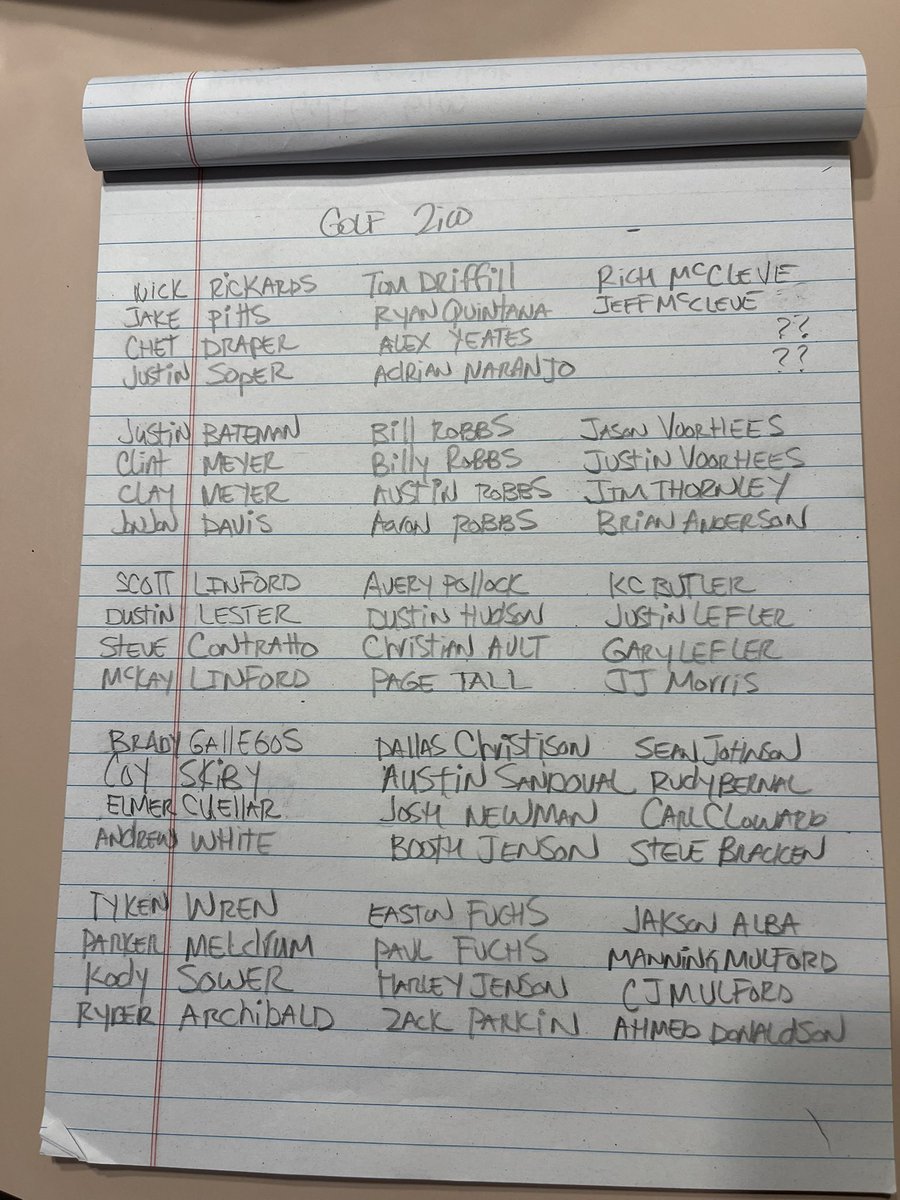 GOLF 2:00
NICK RICKARDS TOM DRIFFILL RICH McCLEVE
JAKE PITTS RYAN QUINTANA JEFF McCLEVE
CHET DRAPER ALEX YEATES ??
JUSTIN SOPER ADRIAN NARANJO ??
JUSTIN BATEMAN Bill ROBBS JASON VOORHEES
Clint MEYER Billy ROBBS JUSTIN VOORHEES
CLAY MEYER AUSTIN ROBBS JIM THORNLEY
DAVIS Aaron ROBBS BRIAN ANDERSON
SCOTT LINFORD AVERY POLLOCK KC BUTLER
DUSTIN LESTER DUSTIN HUDSON JUSTIN LEFLER
STEVE CONTRATTO CHRISTIAN AULT GARY LEFLER
MCKAY LINFORD PAGE TALL JJ MORRIS
BRADY GALLEGOS DALLAS CHRISTISON SEAN JOHNSON
COY SKIBY AUSTIN SANDOVAL RUDY BERNAL
ELMER CUELLAR JOSH NEWMAN CARL CLOWARD
ANDREW WHITE BOOTH JENSON STEVE BRACKEN
TYKEN WREN EASTON FUCHS JAKSON ALBA
PARKER MELDRUM PAUL FUCHS MANNING MULFORD
KODY SOWER HARLEY JENSON CJ MULFORD
RYDER ARCHIBALD ZACK PARKIN AHMED DONALDSON